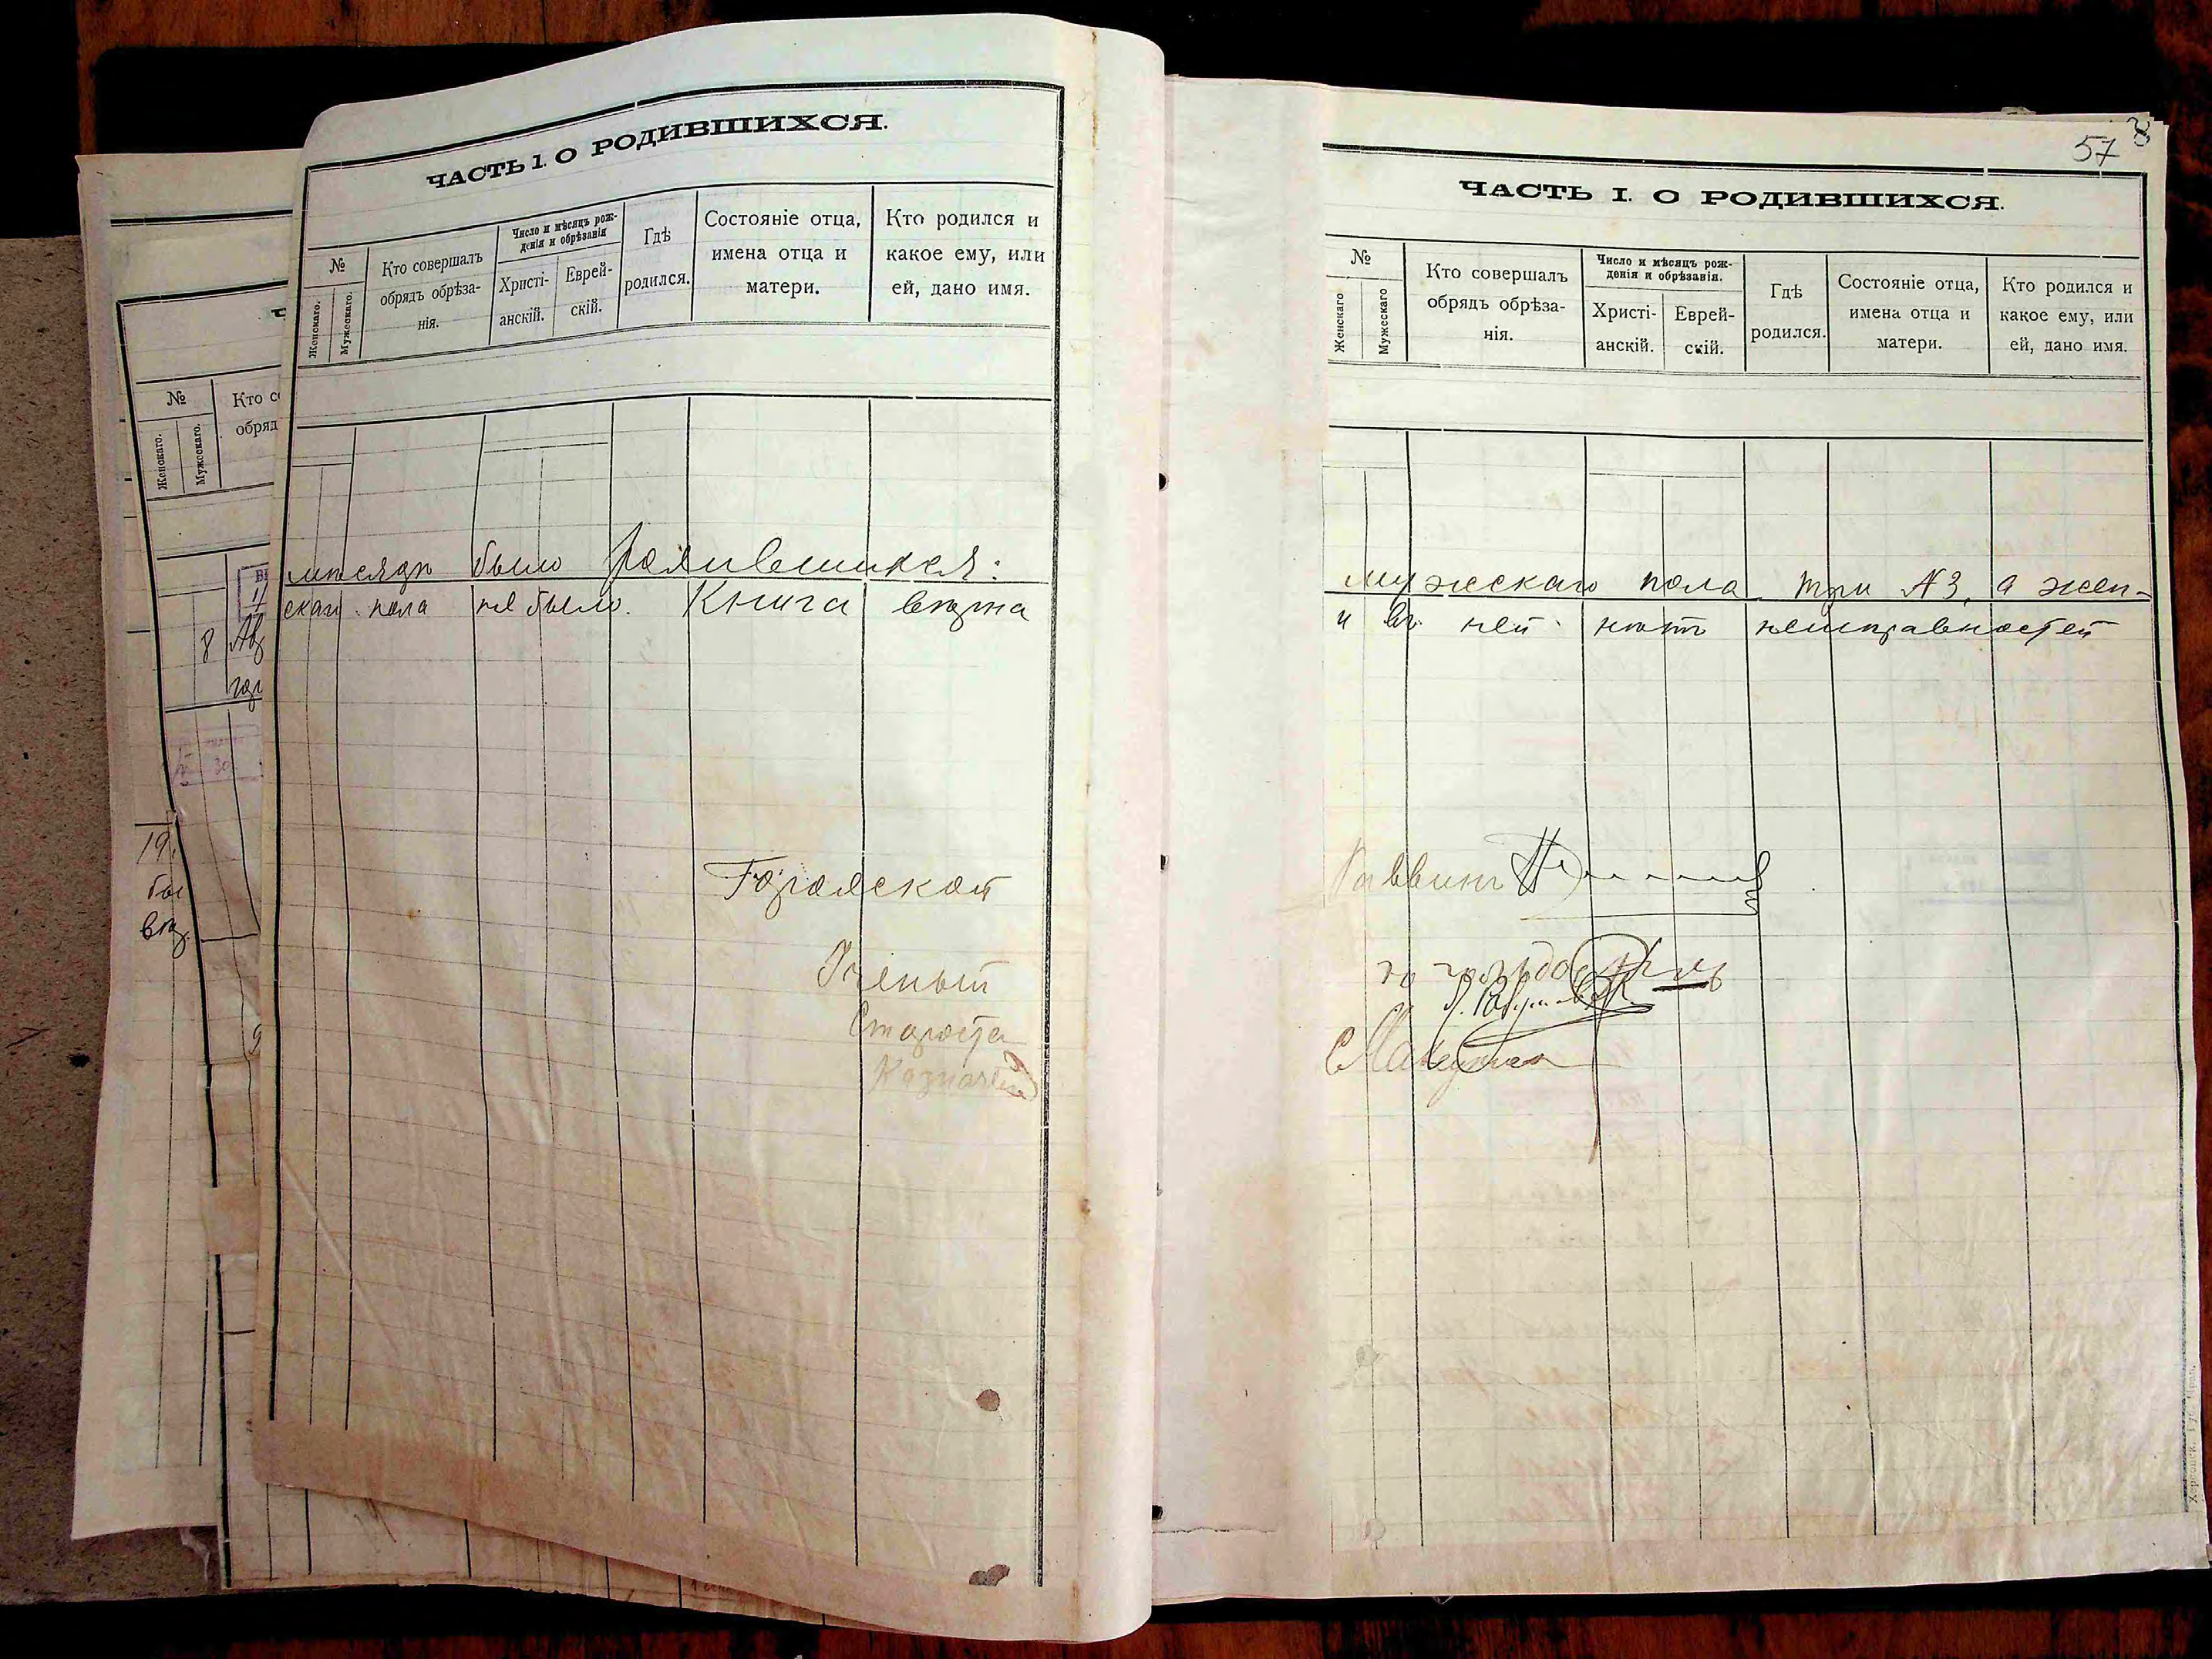 ЧАСТЬ 1. О РОДИВШИХСЯ.
№
Женскаго.
Мужескаго.
Кто совершалъ
обрядъ обрѣза-
нія.
Число и мѣсяцъ рож-
денія и обрѣзанія
Христі-
анскій.
Еврей-
скій.
Гдѣ
родился.
Состояніе отца,
имена отца и
матери.
Кто родился и
какое ему, или
ей, дано имя.
мѣсяцѣ было родившихся:
скаго пола не было. Книга вѣрна
Городской
Ученый
Староста
Казначей
№
Женскаго.
Мужескаго.
Кто со
обряд
8
30
57
ЧАСТЬ I. О РОДИВШИХСЯ.
№
Женскаго
Мужескаго
Кто совершалъ
обрядъ обрѣза-
нія.
Число и мѣсяцъ рож-
денія и обрѣзанія.
Христі-
анскій.
Еврей-
скій.
Гдѣ
родился.
Состояніе отца,
имена отца и
матери.
Кто родился и
какое ему, или
ей, дано имя.
мужескаго пола три №3, а жен-
и въ ней нѣтъ неисправностей
Раввинъ